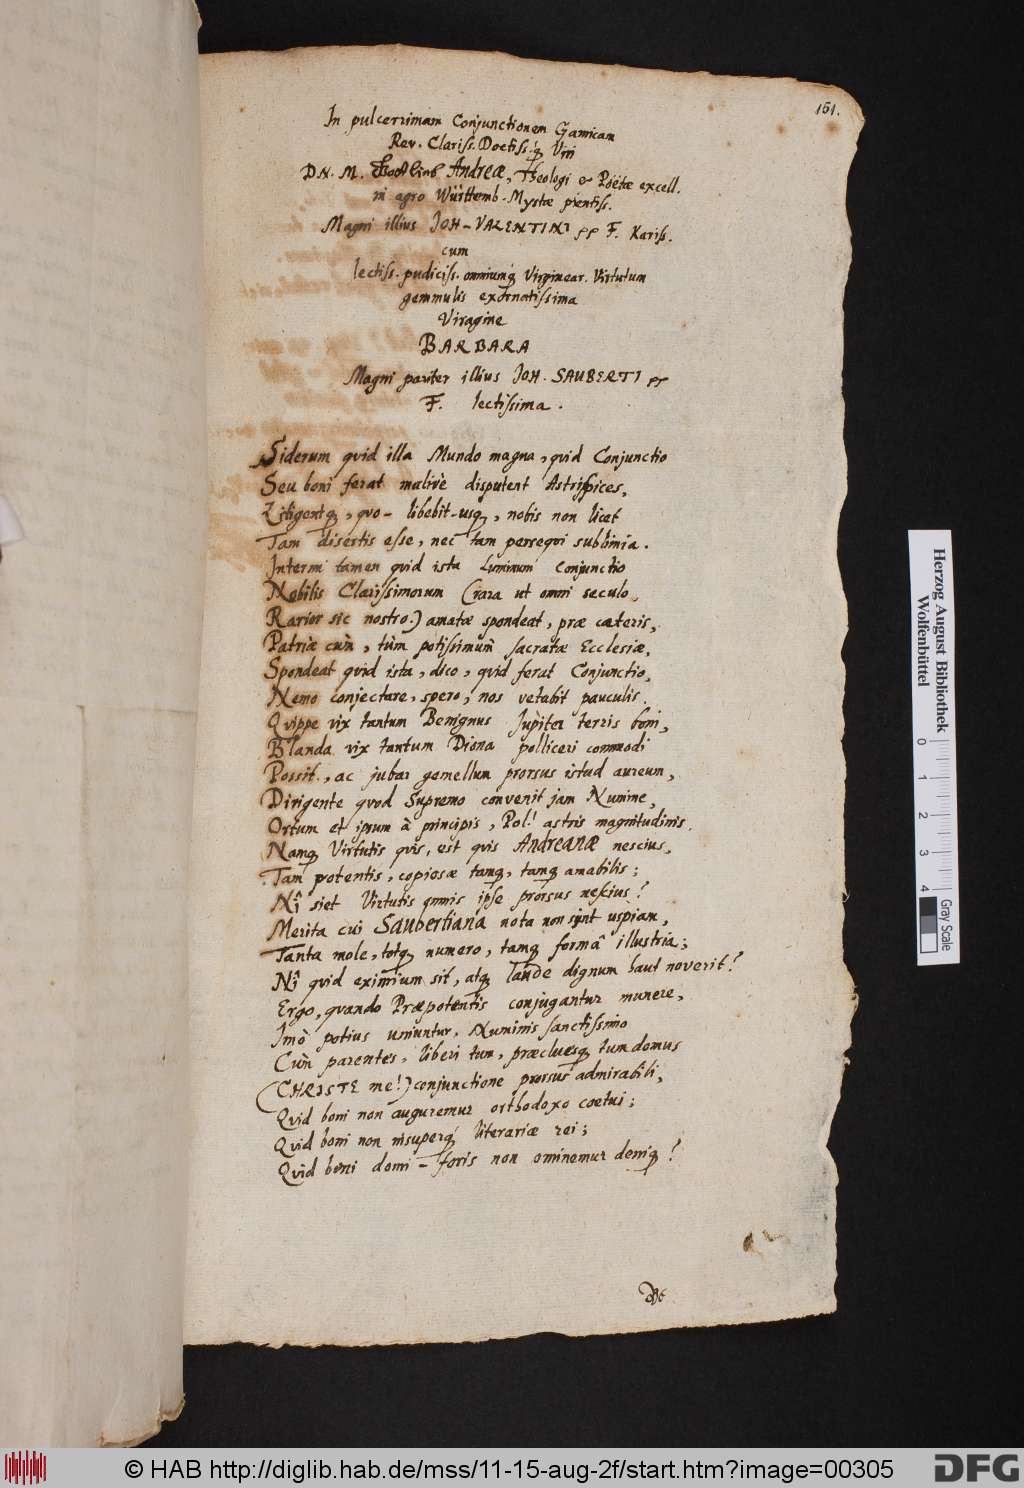 161.
In pulcerrimam Conjunctionem Gamicam
Rev. Clariss. Doctiss.q̃ Viri
DN. M. Gottlieb Andreæ, Theologi & Poëtæ excell.
in agro Württemb. Mystæ pientiss.
Magni illius JOH-VALENTINI pp F. Kariss.
cum
lectiss. pudiciss. omniumq̃ Virginear. Virtutum
gemmulis exornatissima
Viragine
BARBARA
Magni pariter illius JOH. SAUBERTI pp
F. lectissima.
Siderum qvid illa Mundo magna, qvid Conjunctio
Seu boni ferat malivè disputent Astrispices,
Litigentq̃, qvo- libebit-usq̃, nobis non licet
Tam disertis esse, nec tam perseqvi sublimia.
Interim tamen qvid ista Luminum Conjunctio
Nobilis Clarissimorum (rara ut omni seculo,
Rarior sic nostro:) amatæ spondeat, præ cæteris,
Patriæ cùm, tùm potissimùm sacratæ Ecclesiæ,
Spondeat qvid ista, dico, qvid ferat Conjunctio,
Nemo conjectare, spero, nos vetabit pauculis.
Qvippe vix tantum Benignus Jupiter terris boni,
Blanda vix tantum Diona polliceri commodi
Possit, ac jubar gemellum prorsus istud aureum,
Dirigente qvod Supremo convenit jam Numine,
Ortum et ipsum à principis, Pol! astris magnitudinis.
Namq̃ Virtutis qvis, est qvis Andreanæ nescius,
Tam potentis, copiosæ tamq̃, tamq̃ amabilis;
Nî siet Virtutis omnis ipse prorsus nescius?
Merita cui Saubertiana nota non sint uspiam,
Tanta mole, totq̃ numero, tamq̃ formâ illustria;
Nî qvid eximium sit, atq̃ laude dignum haut noverit?
Ergo, qvando Præpotentis conjugantur munere,
Imò potius uniuntur, Numinis sanctissimo
Cùm parentes, liberi tum, præcluesq̃ tum domus
(CHRISTE me!) conjunctione prorsus admirabili,
Qvid boni non auguremur orthodoxo coetui;
Qvid boni non insuperq̃ literariæ rei;
Qvid boni domi - foris non ominemur deniq̃?
Herzog August Bibliothek
Wolfenbüttel
0 1 2 3 4
Gray Scale
© HAB http://diglib.hab.de/mss/11-15-aug-2f/start.htm?image=00305
DFG